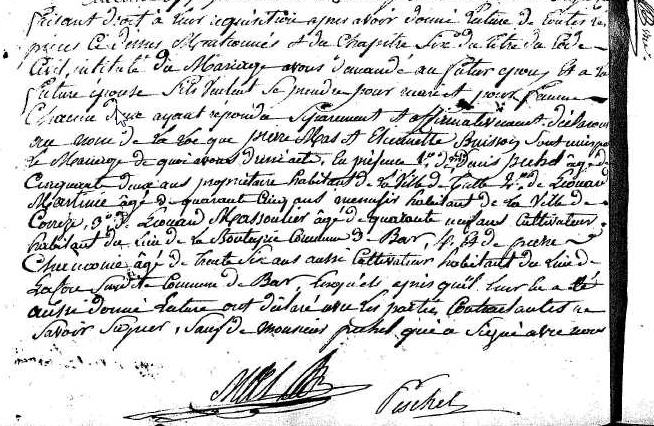 faisant droit à leur requisition apres avoir donné lecture de toutes les
pieces ci dessus Mentionnés et du Chapitre Six du titre du Code
Civil, intitulé du Mariage avons demandé au futur epoux et a la
future epouse S'ils veulent Se prendre pour mari et pour femme
Chacun d'eux ayant répondu Séparement et affirmativement déclarons
au nom de la Loi que pierre Mas et Etiennette Buisson Sont unis par
le Mariage de quoi avons dressé acte, En présence 1er de denis pichel âgé de
Cinquante deux ans propriétaire habitant de la Ville de Tulle 2e de Léonard
âgé de quarante Cinq ans menusier habitant de la Ville de
Correze, 3e de Léonard Massoulier âgé de quarante neuf ans Cultivateur
habitant du Lieu de la Commune de Bar, 4e et de pierre
âgé de trente Six ans aussi Cultivateur habitant du Lieu de
Commune de Bar, Lesquels après qu'il leur en a été
aussi donné Lecture ont déclaré avec les parties Contractantes ne
Savoir Signer, Sauf de monsieur pichel qui a Signé avec nous
Pischel